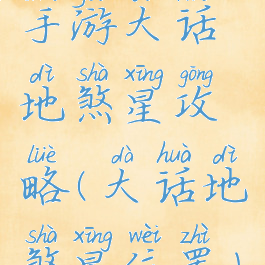 手游大话
dì shà xīng gōng
地煞星攻
lüè dà huà dì
略(大话地
shà xīng wèi zhì
煞星位置)